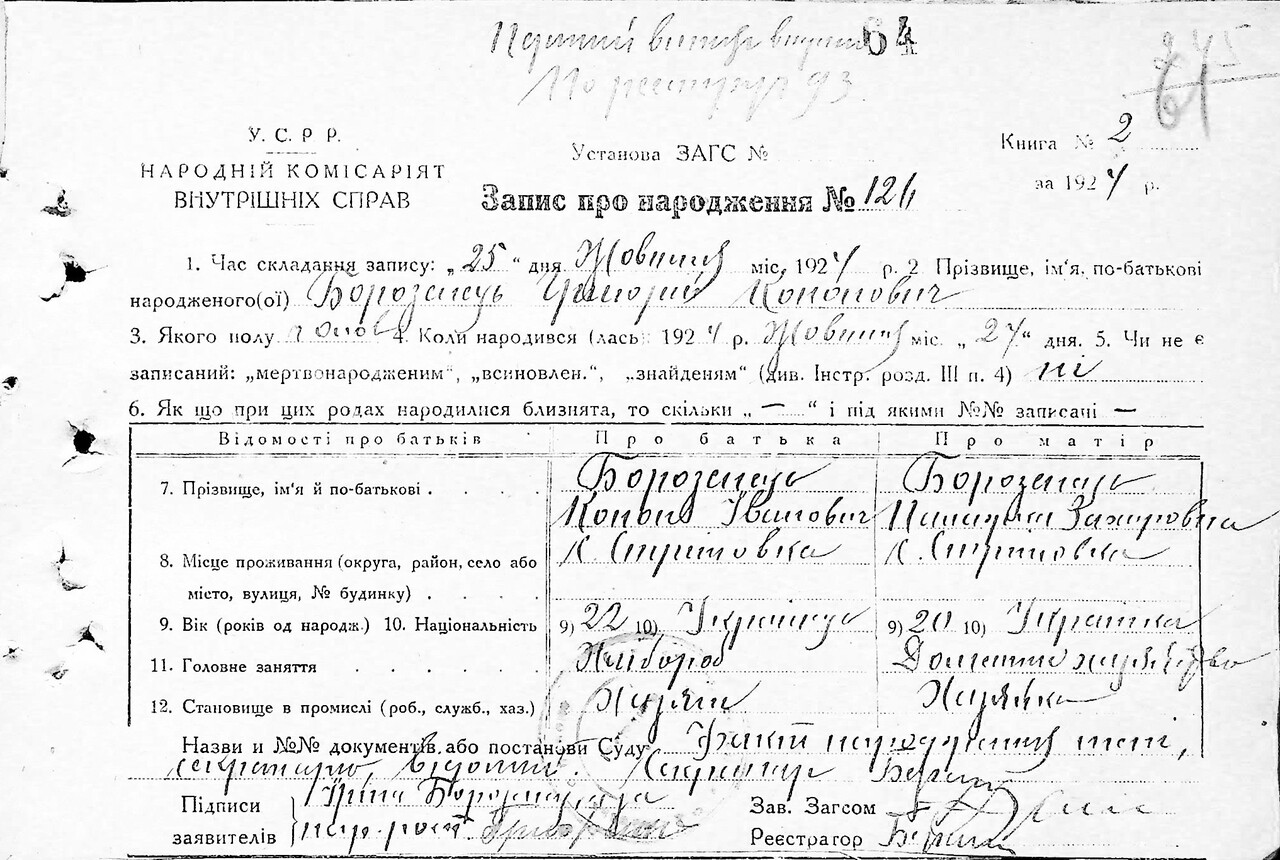 64
245
61
У. С. Р Р.
НАРОДНІЙ КОМІСАРІЯТ
ВНУТРІШНІХ СПРАВ
Установа ЗАГС №
Книга № 2
за 1927 р.
Запис про народження № 126
1. Час складання запису: „ 25 “ дня Жовтня міс. 1927 р. 2. Прізвище, ім'я, по-батькові
народженого(ої) Борозенець Григорій Кононович
3. Якого полу чолов 4. Коли народився (лась) 1927 р. Жовтня міс. „ 24 “ дня. 5. Чи не є
записаний: „мертвонародженим“, „всиновлен.“, „знайденям“ (див. Інстр. розд. III п. 4) ні
6. Як що при цих родах народилися близнята, то скільки „ — “ і під якими №№ записані —
Відомості про батьків Про батька Про матір
7. Прізвище, ім'я й по-батькові Борозенець Борозенець
Конон Іванович Захаровна
8. Місце проживання (округа, район, село або с. Стритовка с. Стритовка
місто, вулиця, № будинку)
9. Вік (років од народж.) 10. Національність 9) 22 10) Українець 9) 20 10) Українка
11. Головне заняття Хлібороб Домашнє хазяйство
12. Становище в промислі (роб., служб., хаз.) Хазяїн Хазяйка
Назви и №№ документів або постанови Суду Факт народження
секретарю, відомий. Секретар
Підписи
заявителів
Зав. Загсом
Реєстратор